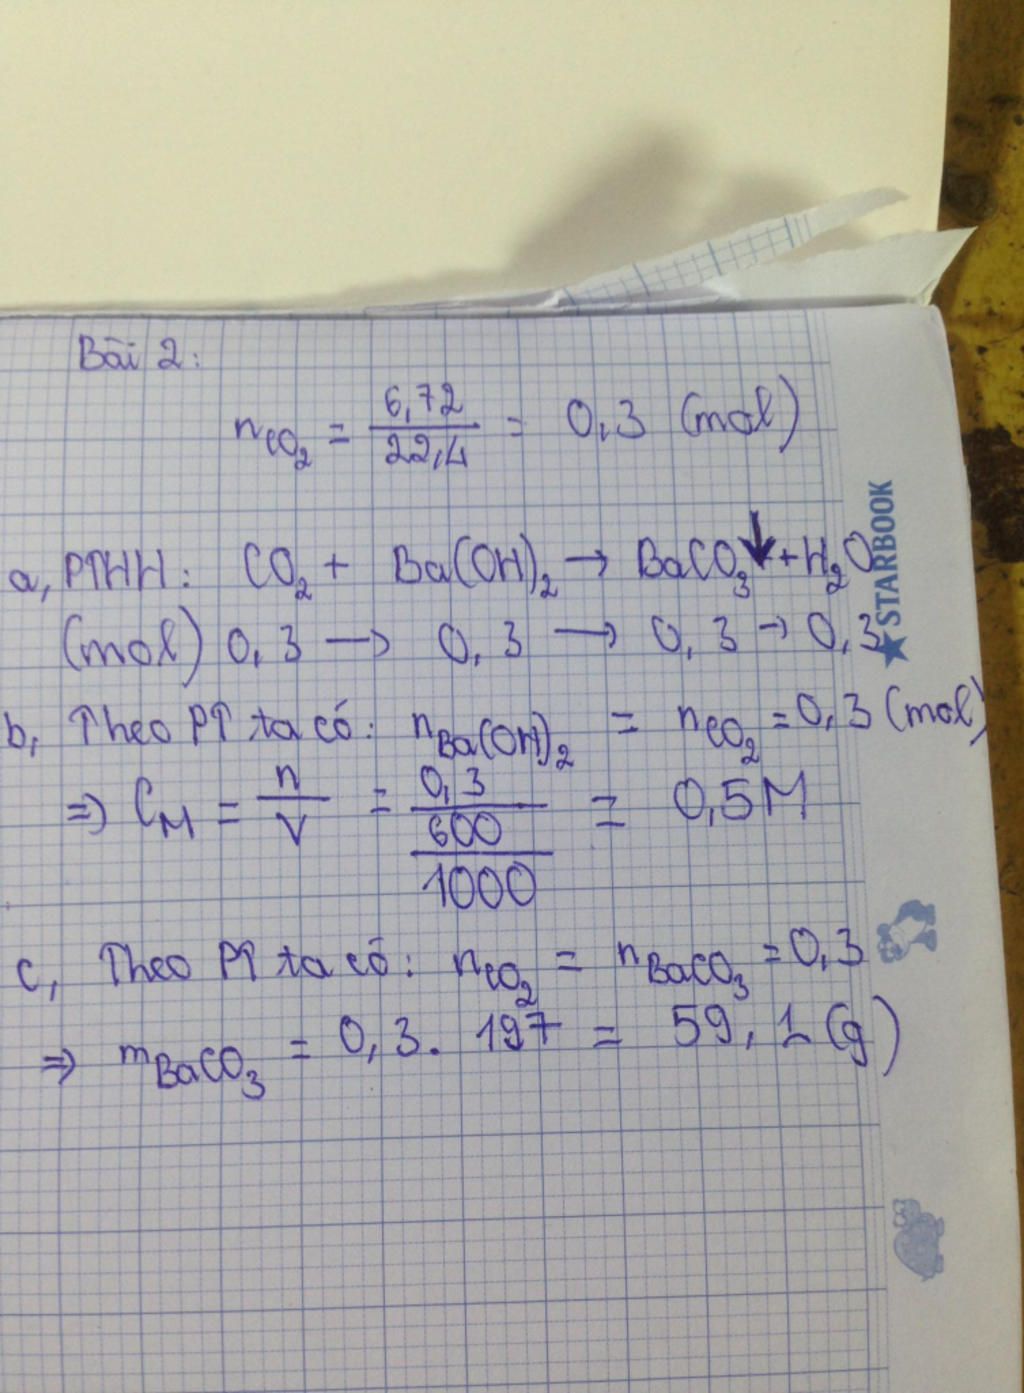 Bài 2:
nCO₂ = 6,72/22,4 = 0,3 (mol)
a, PTHH: CO₂ + Ba(OH)₂ → BaCO₃↓ + H₂O
(mol) 0,3 → 0,3 → 0,3 → 0,3
b, Theo PT ta có: nBa(OH)₂ = nCO₂ = 0,3 (mol)
⇒ CM = n/V = 0,3/(600/1000) = 0,5M
c, Theo PT ta có: nCO₂ = nBaCO₃ = 0,3
⇒ mBaCO₃ = 0,3. 197 = 59,1 (g)
STARBOOK